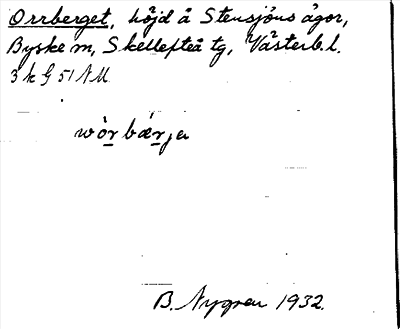 Orrberget, höjd å Stensjöns ägor,
Byske m, Skellefteå tg, Västerb. l.
3 k G 51 NM.
wòr̲bǽr̲ja
B. Nygren 1932.